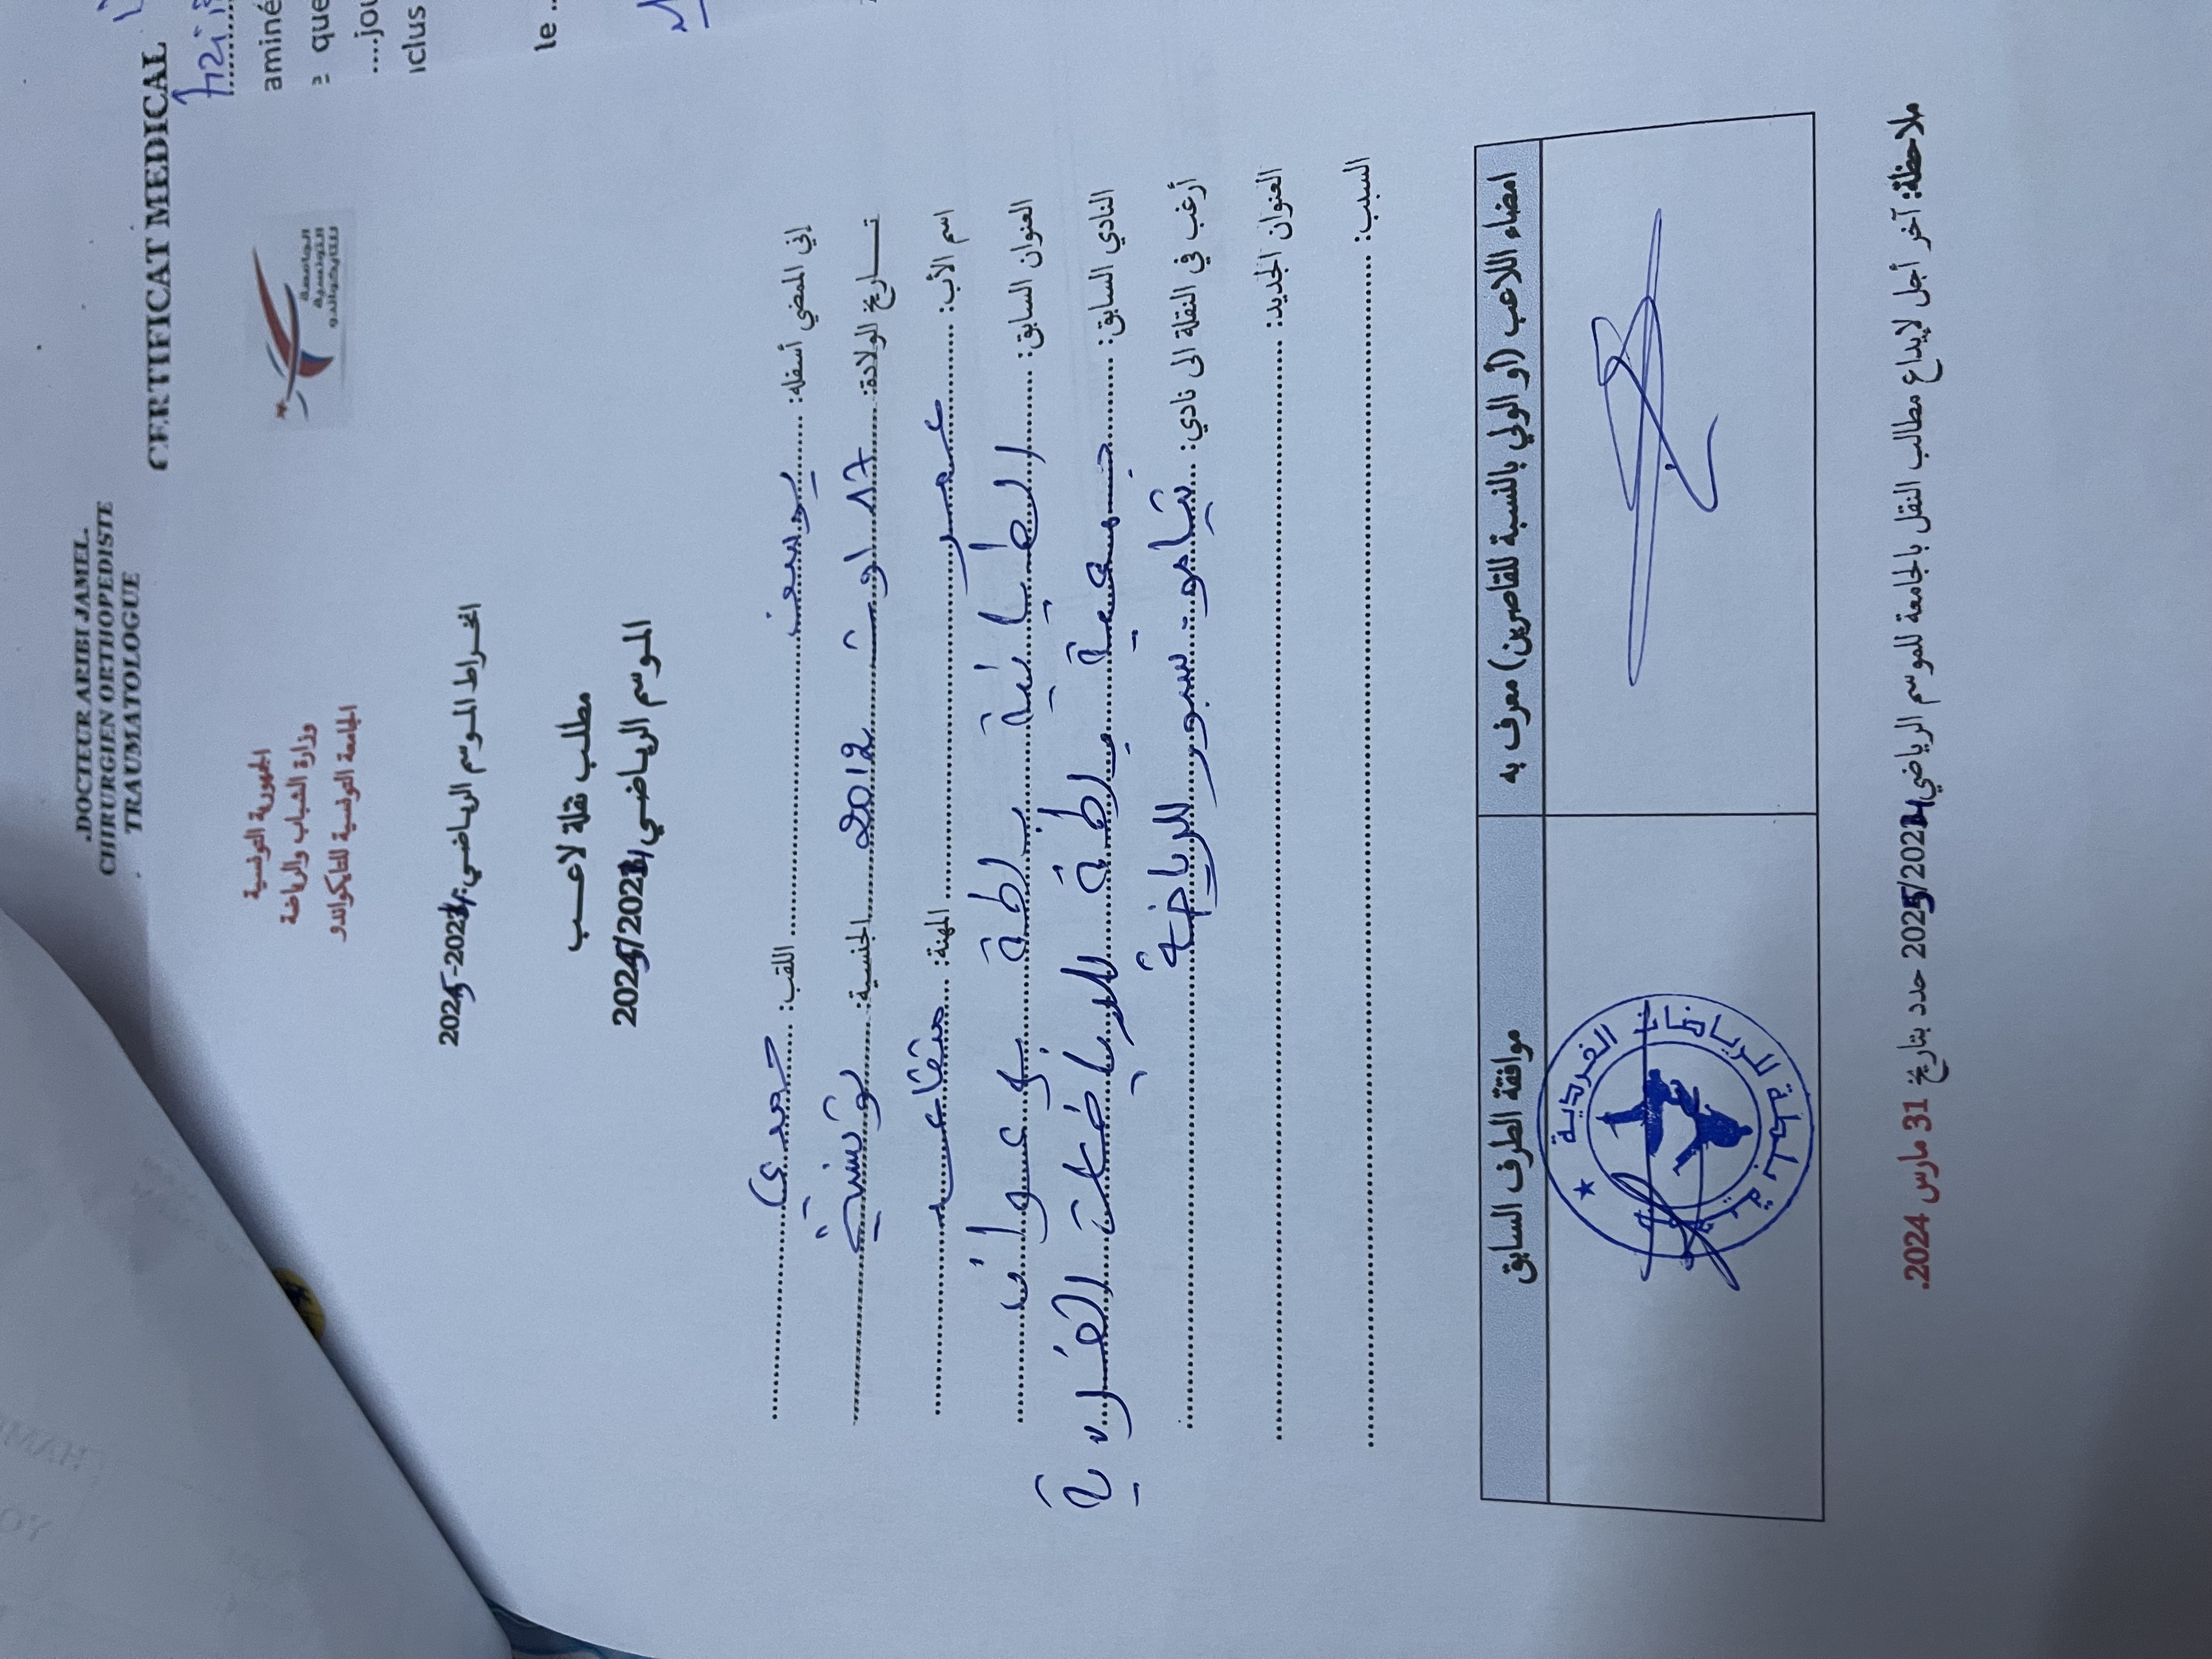 .DOCTEUR ARIBI JAMEL.
CHIRURGIEN ORTHOPEDISTE
TRAUMATOLOGUE
CERTIFICAT MEDICAL
aminé
que
....jou
iclus
le ..
الجمهورية التونسية
وزارة الشباب والرياضة
الجامعة التونسية للتايكواندو
الجامعة
التونسية
للتايكواندو
انخراط الموسم الرياضي: 2024-2025
مطلب نقلة لاعب
الموسم الرياضي 2024/2025
إني الممضي أسفله: يوسف اللقب: حمدي
تاريخ الولادة: 17 اوت 2012 الجنسية: تونسية
اسم الأب: عمر المهنة: متقاعد
العنوان السابق: الطبابة بلطة بوعوان
النادي السابق: جمعية بلطة للرياضات الفردية
أرغب في النقلة الى نادي: سبور للرياضة
العنوان الجديد:
السبب:
امضاء اللاعب (أو الولي بالنسبة للقاصرين) معرف به
موافقة الطرف السابق
بلطة للرياضات الفردية
ملاحظة: آخر أجل لإيداع مطالب النقل بالجامعة للموسم الرياضي 2024/2025 حدد بتاريخ 31 مارس 2024.